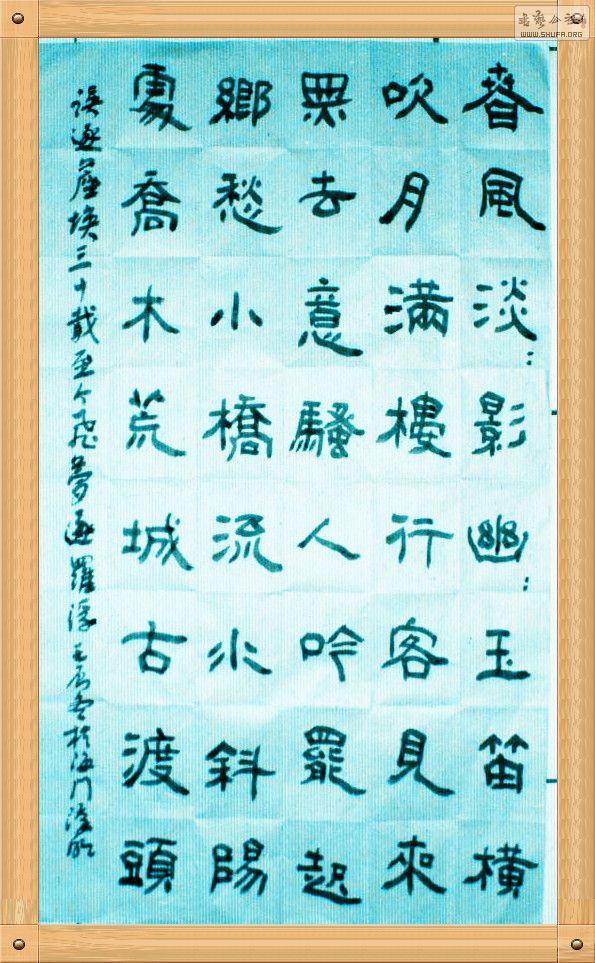 書藝公社
WWW.SHUFA.ORG
春風淡：影幽：玉笛橫
吹月滿樓行客見來
無去意騷人吟罷起
鄉愁小橋流水斜陽
處喬木荒城古渡頭
誤逐塵埃三十載至今飛夢逐羅浮 於海門